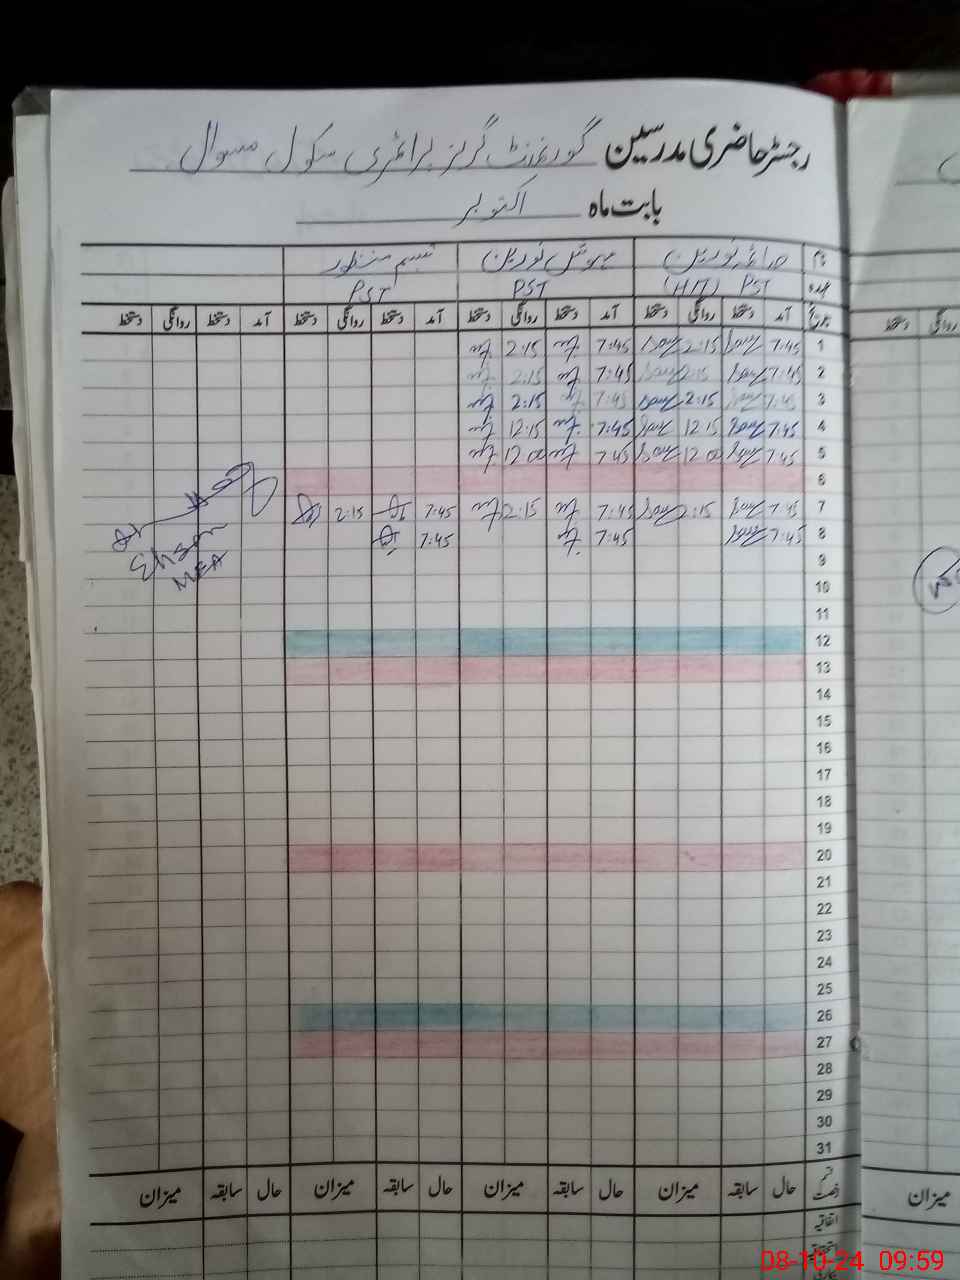 رجسٹر حاضری مدرسین گورنمنٹ گرلز پرائمری سکول مسوال
بابت ماہ اکتوبر
نام صائمہ نورین مہوش نورین تبسم منظور
عہدہ PST (HT) PST PST
تاریخ آمد دستخط روانگی دستخط آمد دستخط روانگی دستخط آمد دستخط روانگی دستخط آمد دستخط روانگی دستخط
1 7:45 2:15 7:45 2:15
2 7:45 2:15 7:45 2:15
3 7:45 2:15 7:45 2:15
4 7:45 12:15 7:45 12:15
5 7:45 12:00 7:45 12:00
6
7 7:45 2:15 7:45 2:15 7:45 2:15
8 7:45 7:45 7:45
Ehsan
MEA
9
10
11
12
13
14
15
16
17
18
19
20
21
22
23
24
25
26
27
28
29
30
31
قسم رخصت حال سابقہ میزان حال سابقہ میزان حال سابقہ میزان حال سابقہ میزان
اتفاقیہ
روانگی دستخط
میزان
08-10-24 09:59